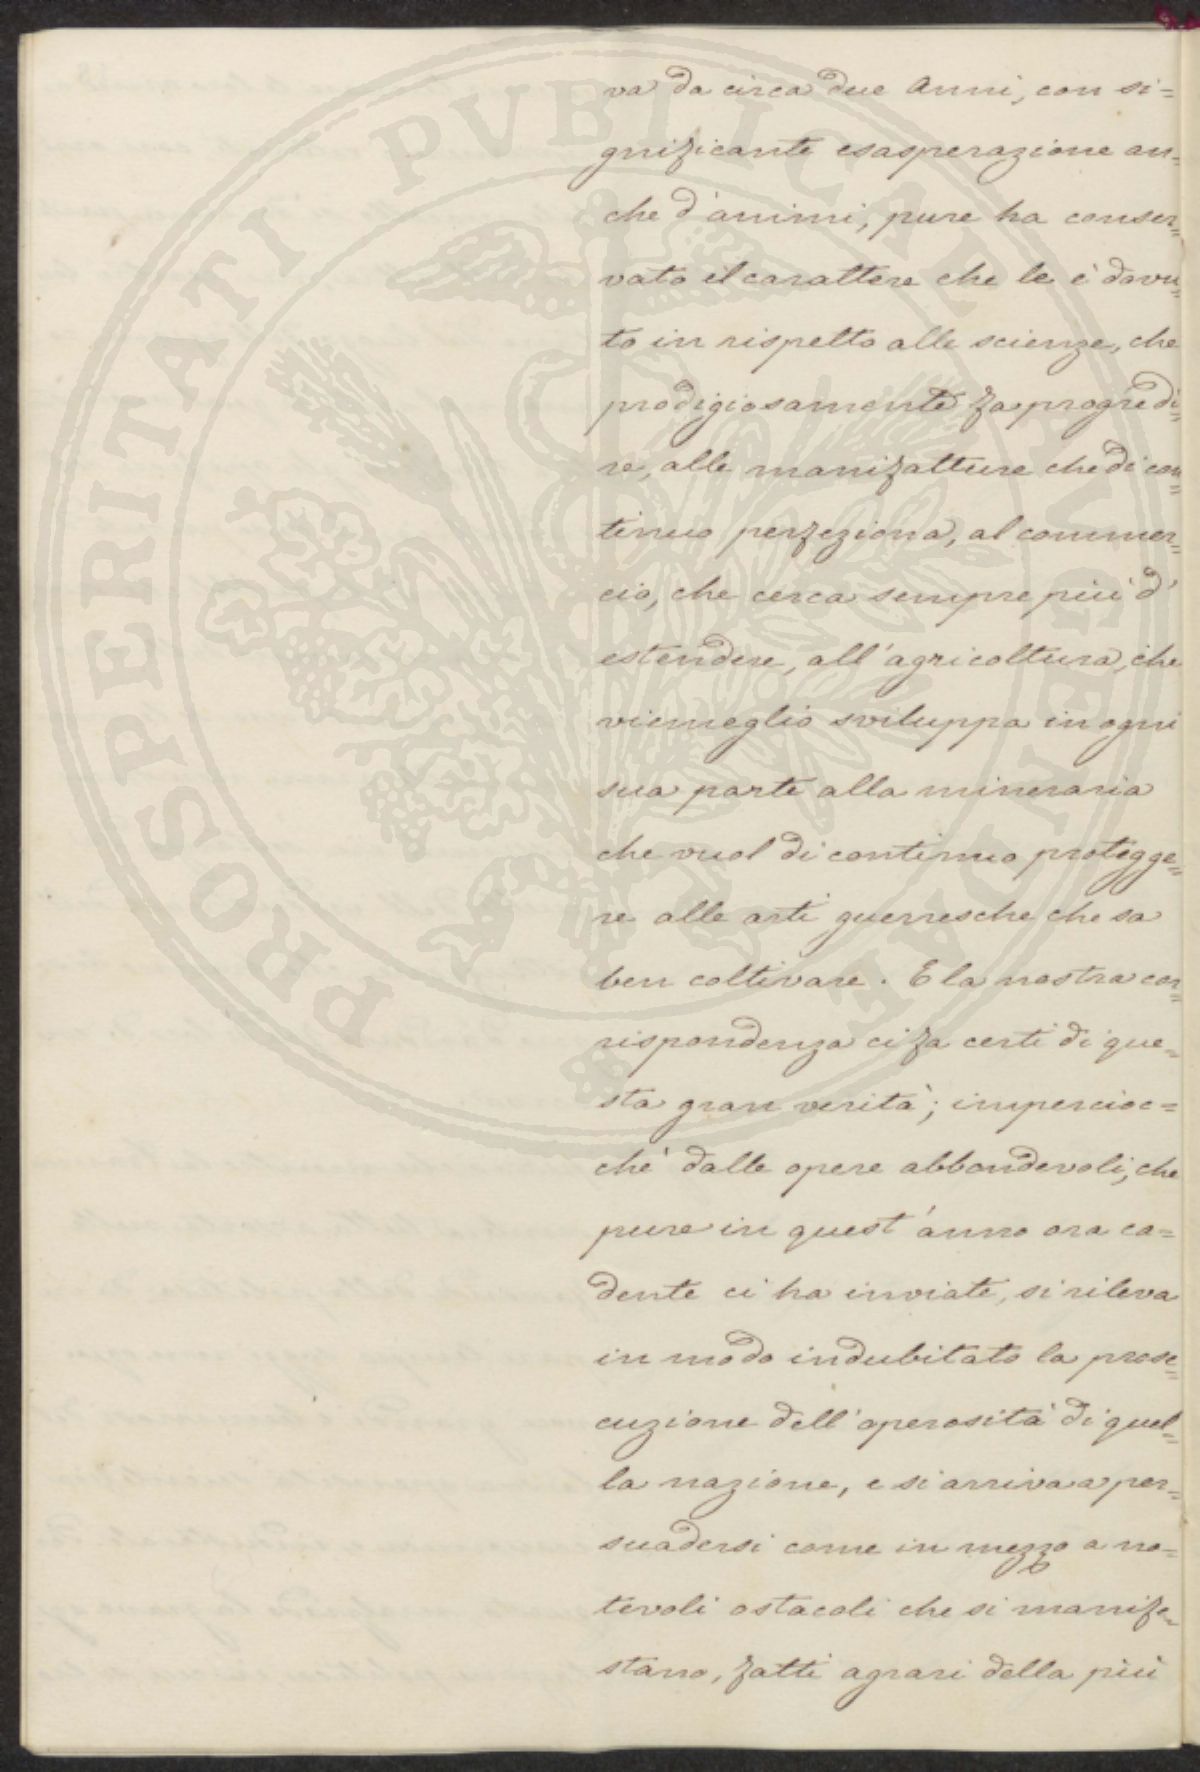 va da circa due Anni, con si=
gnificante esasperazione an=
che d'animi, pure ha conser=
vato il carattere che le è dovu=
to in rispetto alle scienze, che
prodigiosamente fa progredi=
re, alle manifatture che di con=
tinuo perfeziona, al commer=
cio, che cerca sempre più d'
estendere, all'agricoltura, che
viemeglio sviluppa in ogni
sua parte alla mineraria
che vuol di continuo protegge=
re alle arti guerresche che sa
ben coltivare. E la nostra cor=
rispondenza ci fa certi di que=
sta gran verità; impercioc=
chè dalle opere abbondevoli, che
pure in quest'anno ora ca=
dente ci ha inviate, si rileva
in modo indubitato la prose=
cuzione dell'operosità di quel=
la nazione, e si arriva a per=
suadersi come in mezzo a no=
tevoli ostacoli che si manife=
stano, fatti agrari della più
PROSPERITATI PVBLICAE AVGENDAE